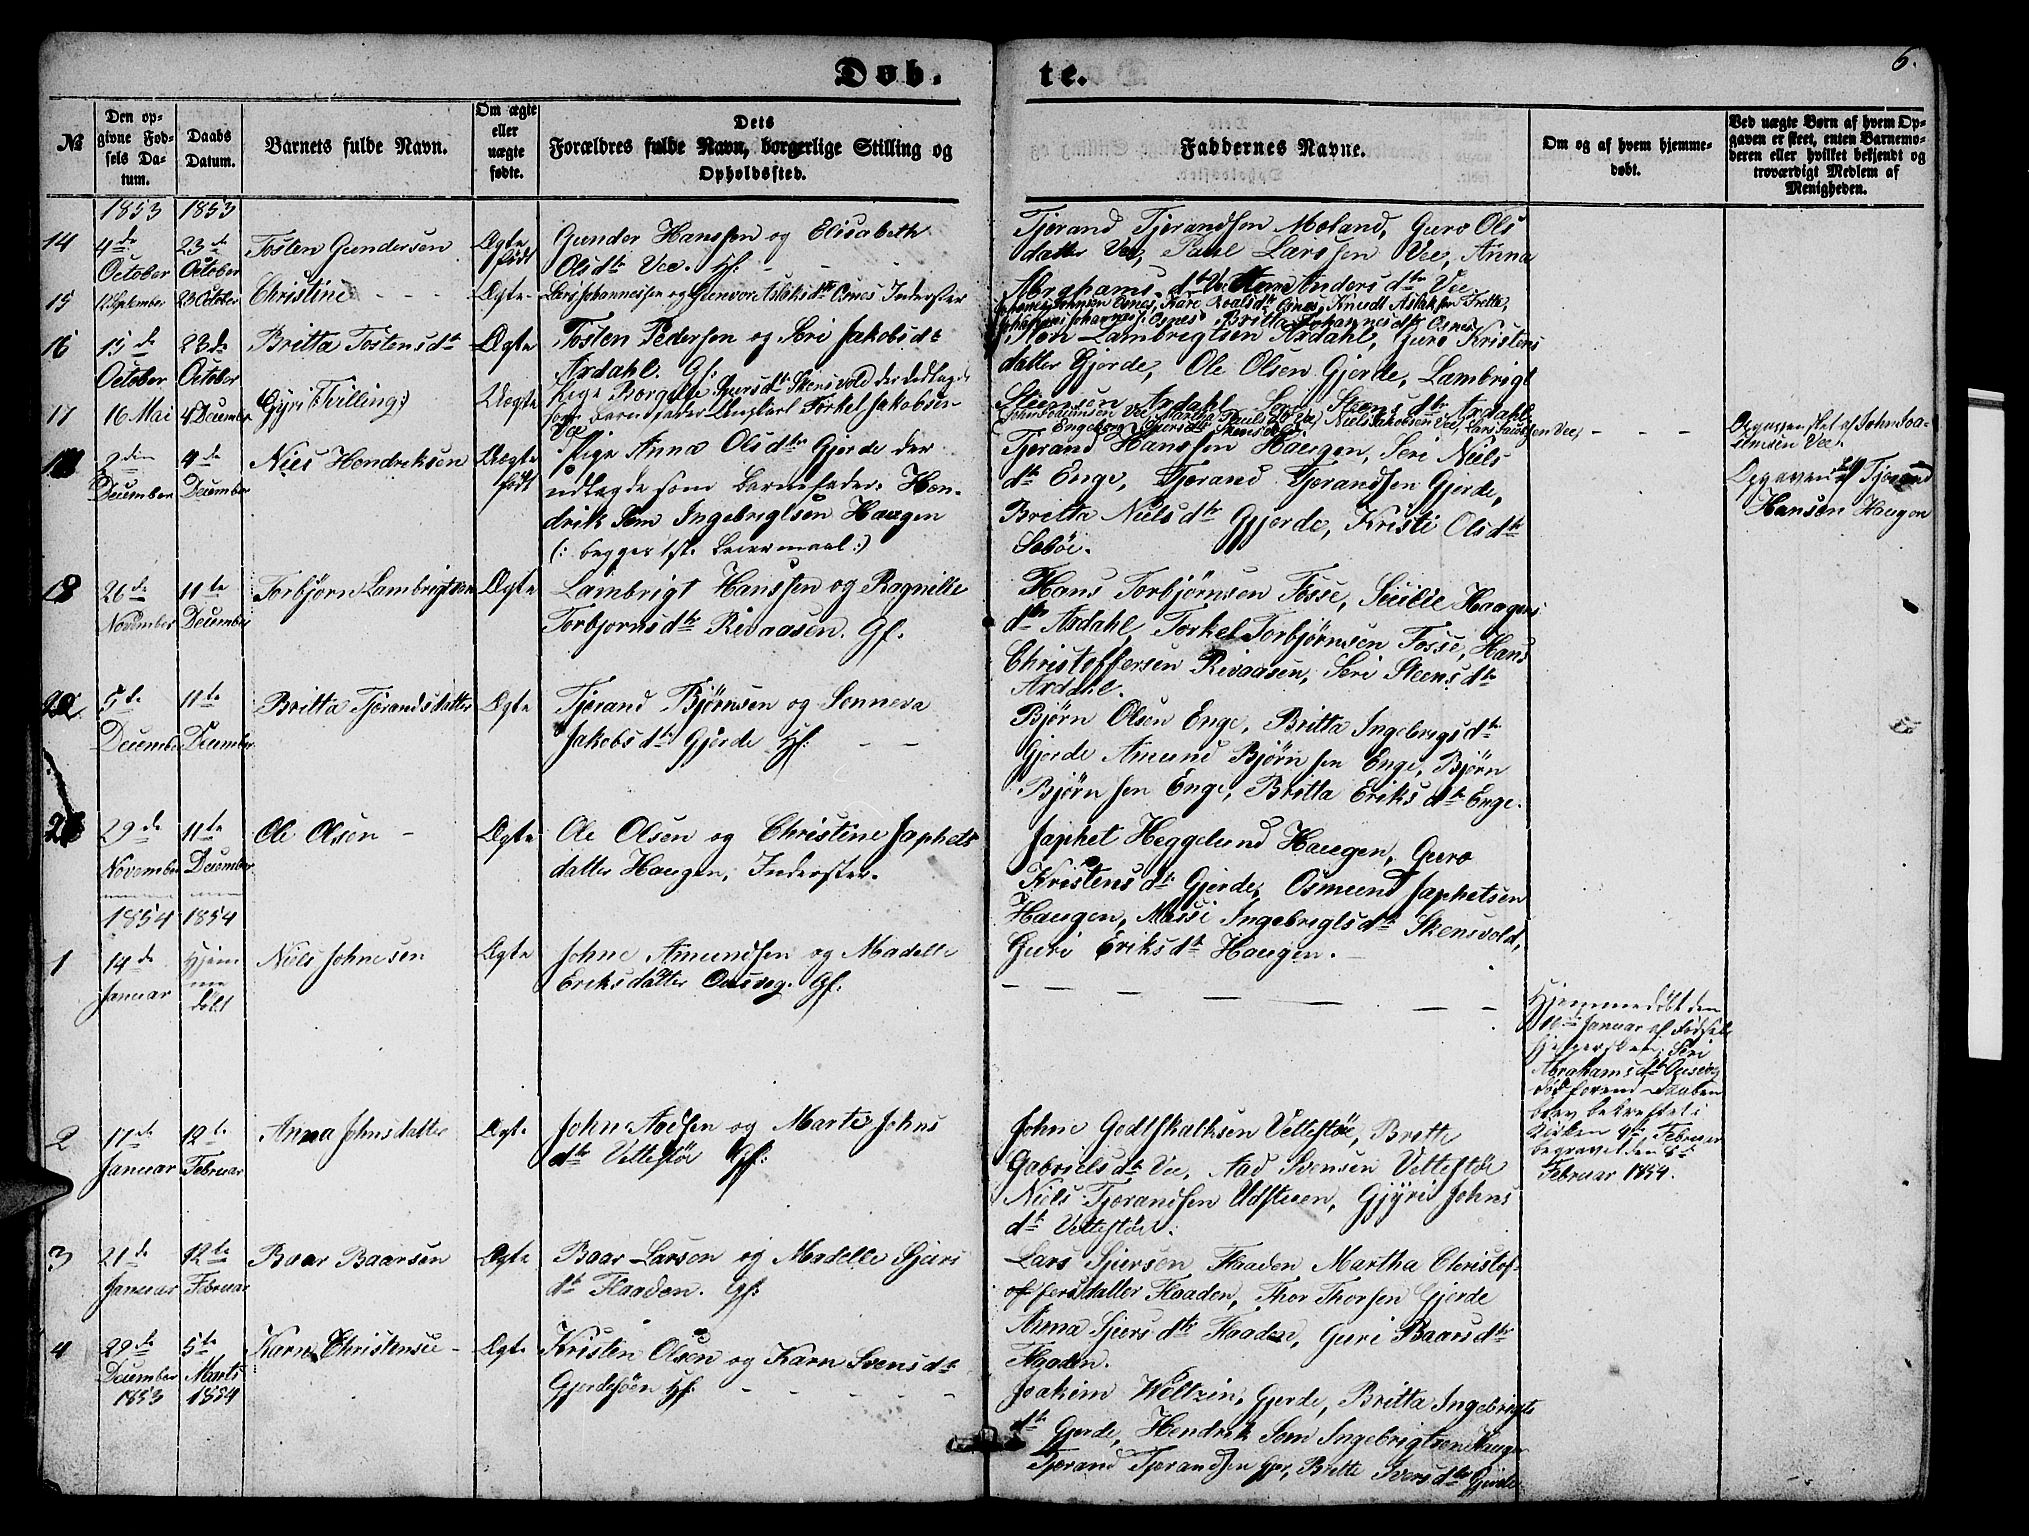 Døb.
te.
6.
№
Den op-
givne Fød-
sels Da-
tum.
Daabs
Datum.
Barnets fulde Navn.
Om ægte
eller
uægte
fødte.
Dets
Forældres fulde Navn, borgerlige Stilling og
Opholdssted.
Faddernes Navne.
Om og af hvem hjemme-
døbt.
Ved uægte Børn af hvem Op-
gaven er skeet, enten Barnemo-
deren eller hvilket bekjendt og
troværdigt Medlem af
Menigheden.
1853 1853
14
4de
October
23de
October
Tosten Gundersen
Ægte
født
Gunder Hanssen og Elisabeth
Olsdtr Vee. Hf. - - -
Tjerand Tjerandsen Moland, Guro Ols
datter Vee, Paul Larssen Vee, Anna
Abrahams dtr Vee, Anders dtr Vee
15
12 September
23 October
Christine - - -
Ægte -
Lars Johannessen og Gunvor Aslaksdtr Osnes Inderster
Osnes, Kari Roalsdtr Osnes, Knudt Aslaksen Trette,
Johannes. Osnes, Britta Johannesdtr Osnes
16
15de
October
23de
October
Britta Tostensdtr
Ægte
Tosten Pedersen og Seri Jakobsdtr
Ardahl. Gf.
Steen Lambregtsen Ardahl, Guro Kristens
datter Gjerde, Ole Olsen Gjerde, Lambrigt
Steensen Ardahl, Seri Steens dtr Ardahl
17
16 Mai
4 December
Gyri (Tvilling:)
Uægte
Pige Borgelle Sjursdtr Skensvold der udlagde
som Barnefader Ungkarl Torkel Jakobsen
Vee
Vee, Martha Paulsdtr Vee, Niels Jakobsen Vee, Lars Vee,
Engeborg Sjursdtr Skensvold
- - -
Opgaven sket af John Joa-
kimsen Vee.
18
2den
December
4de
December
Niels Hendriksen
Uægte
født
Pige Anna Olsdtr Gjerde der
udlagde som Barnefader Hen-
drik Sem Ingebrigtsen Haugen
(: begges 1ste Leiermaal:)
Tjerand Hanssen Haugen, Seri Niels
dtr Enge, Tjerand Tjerandsen Gjerde,
Britta Nielsdtr Gjerde, Kristi Olsdtr
Sebøe.
Opgaven af Tjerand
Hansen Haugen
19
26de
November
11te
December
Torbjørn Lambrigtsen
Ægte
Lambrigt Hanssen og Ragnille
Torbjornsdtr Rivaasen. Gf.
Hans Torbjørnsen Fosse, Secilie Haagens
dtr Ardahl, Torkel Torbjørnsen Fosse, Hans
Christoffersen Rivaasen, Seri Steensdtr
Ardahl.
20
5te
December
11te
December
Britta Tjørandsdatter
Ægte
Tjerand Bjørnsen og Senneva
Jakobsdtr Gjerde Hf: - -
Bjørn Olsen Enge, Britta Ingebrigsdtr
Gjerde Amund Bjørnsen Enge, Bjørn
Bjørnsen Enge, Britta Eriksdtr Enge.
21
29de
November
11te
December
Ole Olsen -
Ægte
Ole Olsen og Christine Japhets
datter Haugen, Inderster.
Japhet Heggelund Haugen, Guro
Kristensdtr Gjerde, Osmund Japhetsen
Haugen, Massi Ingebrigtsdtr Skensvold,
Guri Eriksdtr Haugen. -
1854 1854
1
14de
Januar
Hjem
me
døbt
Niels Johnesen
Ægte
Johne Amundsen og Madelle
Eriksdatter Ousvog. Gf.
- - - - - - -
Hjemmedøbt den
Januar af Fødsels
hjelpersken, Seri
Abrahamsdtr Ousvog
død forend Daaben
blev bekreftet i
Kirken Februar
begravet den 8de
Februar 1854.
2
17de
Januar
12te
Februar
Anna Johnsdatter
Ægte
John Aadsen og Marte Johns
dtr Vettestøe Gf:
Johne Godtskalksen Vettestøe, Britte
Gabrielsdtr Vee, Aad Svensen Vettestøe
Niels Tjorandsen Udsteen, Gjyri Johns
dtr Vettestøe.
3
21de
Januar
12te
Februar
Baar Baarsen
Ægte
Baar Larsen og Madelle Sjurs
dtr Flaaden. Gf.
Lars Sjursen Flaaden Martha Christof-
fersdatter Flaaden, Thor Thorsen Gjerde
Anna Sjursdtr Flaaden, Guri Baarsdtr
Flaaden.
4
29de
December
1853
5te
Marts
1854
Karn Christense -
Ægte
Kristen Olsen og Karn Svensdtr
Gjerdesøen Hf. - - - - -
Joakim Weltzin, Gjerde, Britta Ingebrigts
dtr Gjerde, Hendrik Sem Ingebrigtsen Haugen
Tjerand Tjerandsen Gjer, Britte Iversdtr Gjerde